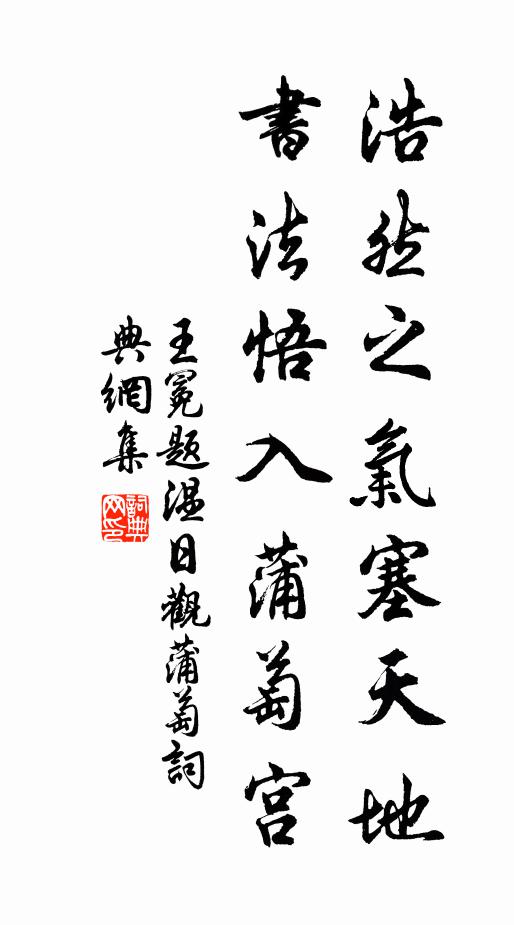 浩然之氣塞天地
書法悟入蒲萄宮
王冕題溫日觀蒲萄詞
典網集
詞典网印